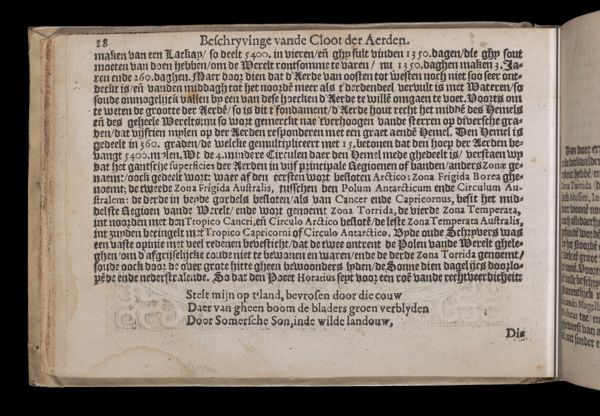 18
Beschryvinge vande Cloot der Aerden.
maken van een Lackay/ so deelt 5400. in vieren/ eñ ghy sult vinden 1350. dagen/ die ghy sout
moeten van doen hebben/ om de Werelt rontsomme te varen/ nu 1350. daghen maken 3. Ja-
ren ende 260. daghen. Maer door dien dat d'Aerde van oosten tot westen noch niet soo seer ont-
deckt is/ eñ vanden middagh tot het noordẽ meer als t'derdendeel vervult is met Wateren/ so
soude onmogelijck vallen by een van dese hoecken d'Aerde te willẽ omgaen te voet. Voorts om
te weten de grootte der Aerdẽ/ so is dit t'fondament/ d'Aerde hout recht het middẽ des Hemels
eñ des geheele Werelts: uñ so wort gemerckt nae t'verhoogen vande sterren op diversche gra-
den/ dat vijftien mylen op der Aerden responderen met een graet aendẽ Hemel. Den Hemel is
gedeelt in 360. graden/ de welcke gemultipliceert met 15, betonen dat den hoep der Aerden be-
vangt 5400. mylen. Wt de 4. minder Circulen daer den Hemel mede ghedeelt is/ verstaen wy
dat het gantsche superficies der Aerden in vijf principale Regioenen of banden/ anders Zonæ ge-
naemt/ oock gedeelt wort: waer af den eersten wort besloten Arctico: Zona Frigida Borea ghe-
noemt; de tweede Zona Frigida Australis, tusschen den Polum Antarcticum ende Circulum Au-
stralem: de derde in beyde gordels besloten/ als van Cancer ende Capricornus, besit het mid-
delste Regioen vande Werelt/ ende wort genoemt Zona Torrida, de vierde Zona Temperata,
int noorden met den Tropico Cancri, eñ Circulo Arctico beslotẽ/ de leste Zona Temperata Australis,
int zuyden beringelt met Tropico Capricorni of Circulo Antarctico. Byde oude Schryvers was
een vaste opinie met veel redenen bevesticht/ dat de twee ontrent de Polen vande Werelt ghele-
ghen/ om d'afgrijselijcke coude niet te bewonen en waren/ ende de derde Zona Torrida genoemt/
soude oock door de over groote hitte gheen bewoonders lyden/ de Sonne dien dagelijcx doorlo-
pẽde ende nederstralende. So dat den Poeet Horatius seyt voor een roẽ vande rechtveerdicheit:
Stelt mijn op t'land, bevrosen door die couw
Daer van gheen boom de bladers groen verblyden
Door Somersche Son, inde wilde landouw,
Die